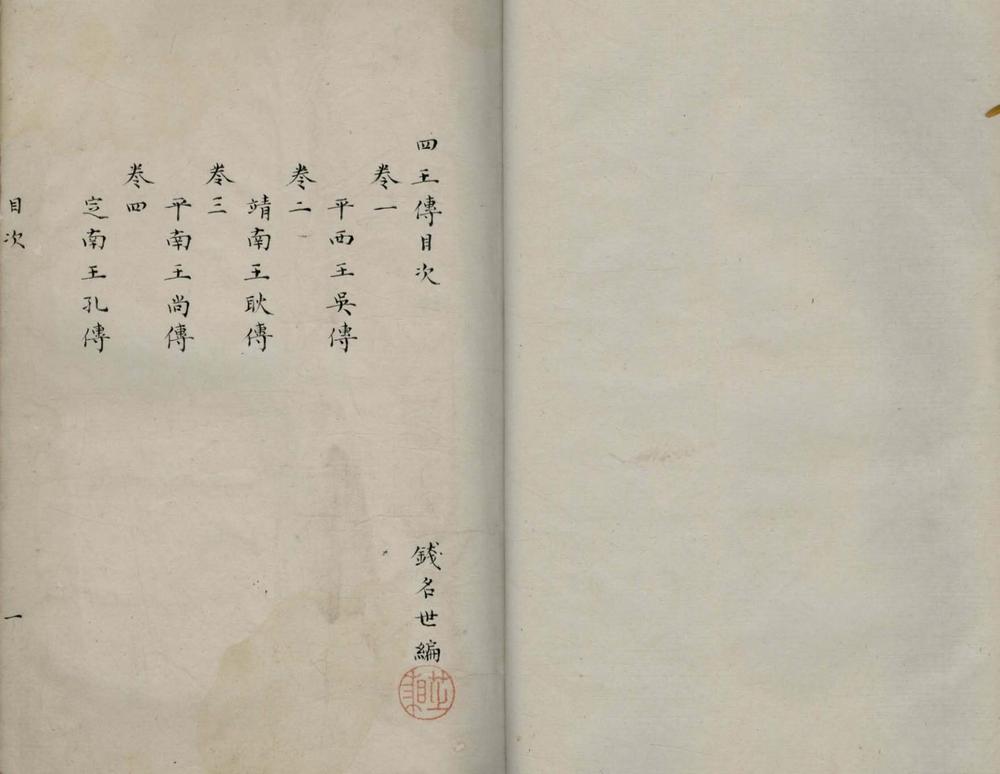 四王傳目次
錢名世編
卷一
平西王吳傳
卷二
靖南王耿傳
卷三
平南王尚傳
卷四
定南王孔傳
目次
一